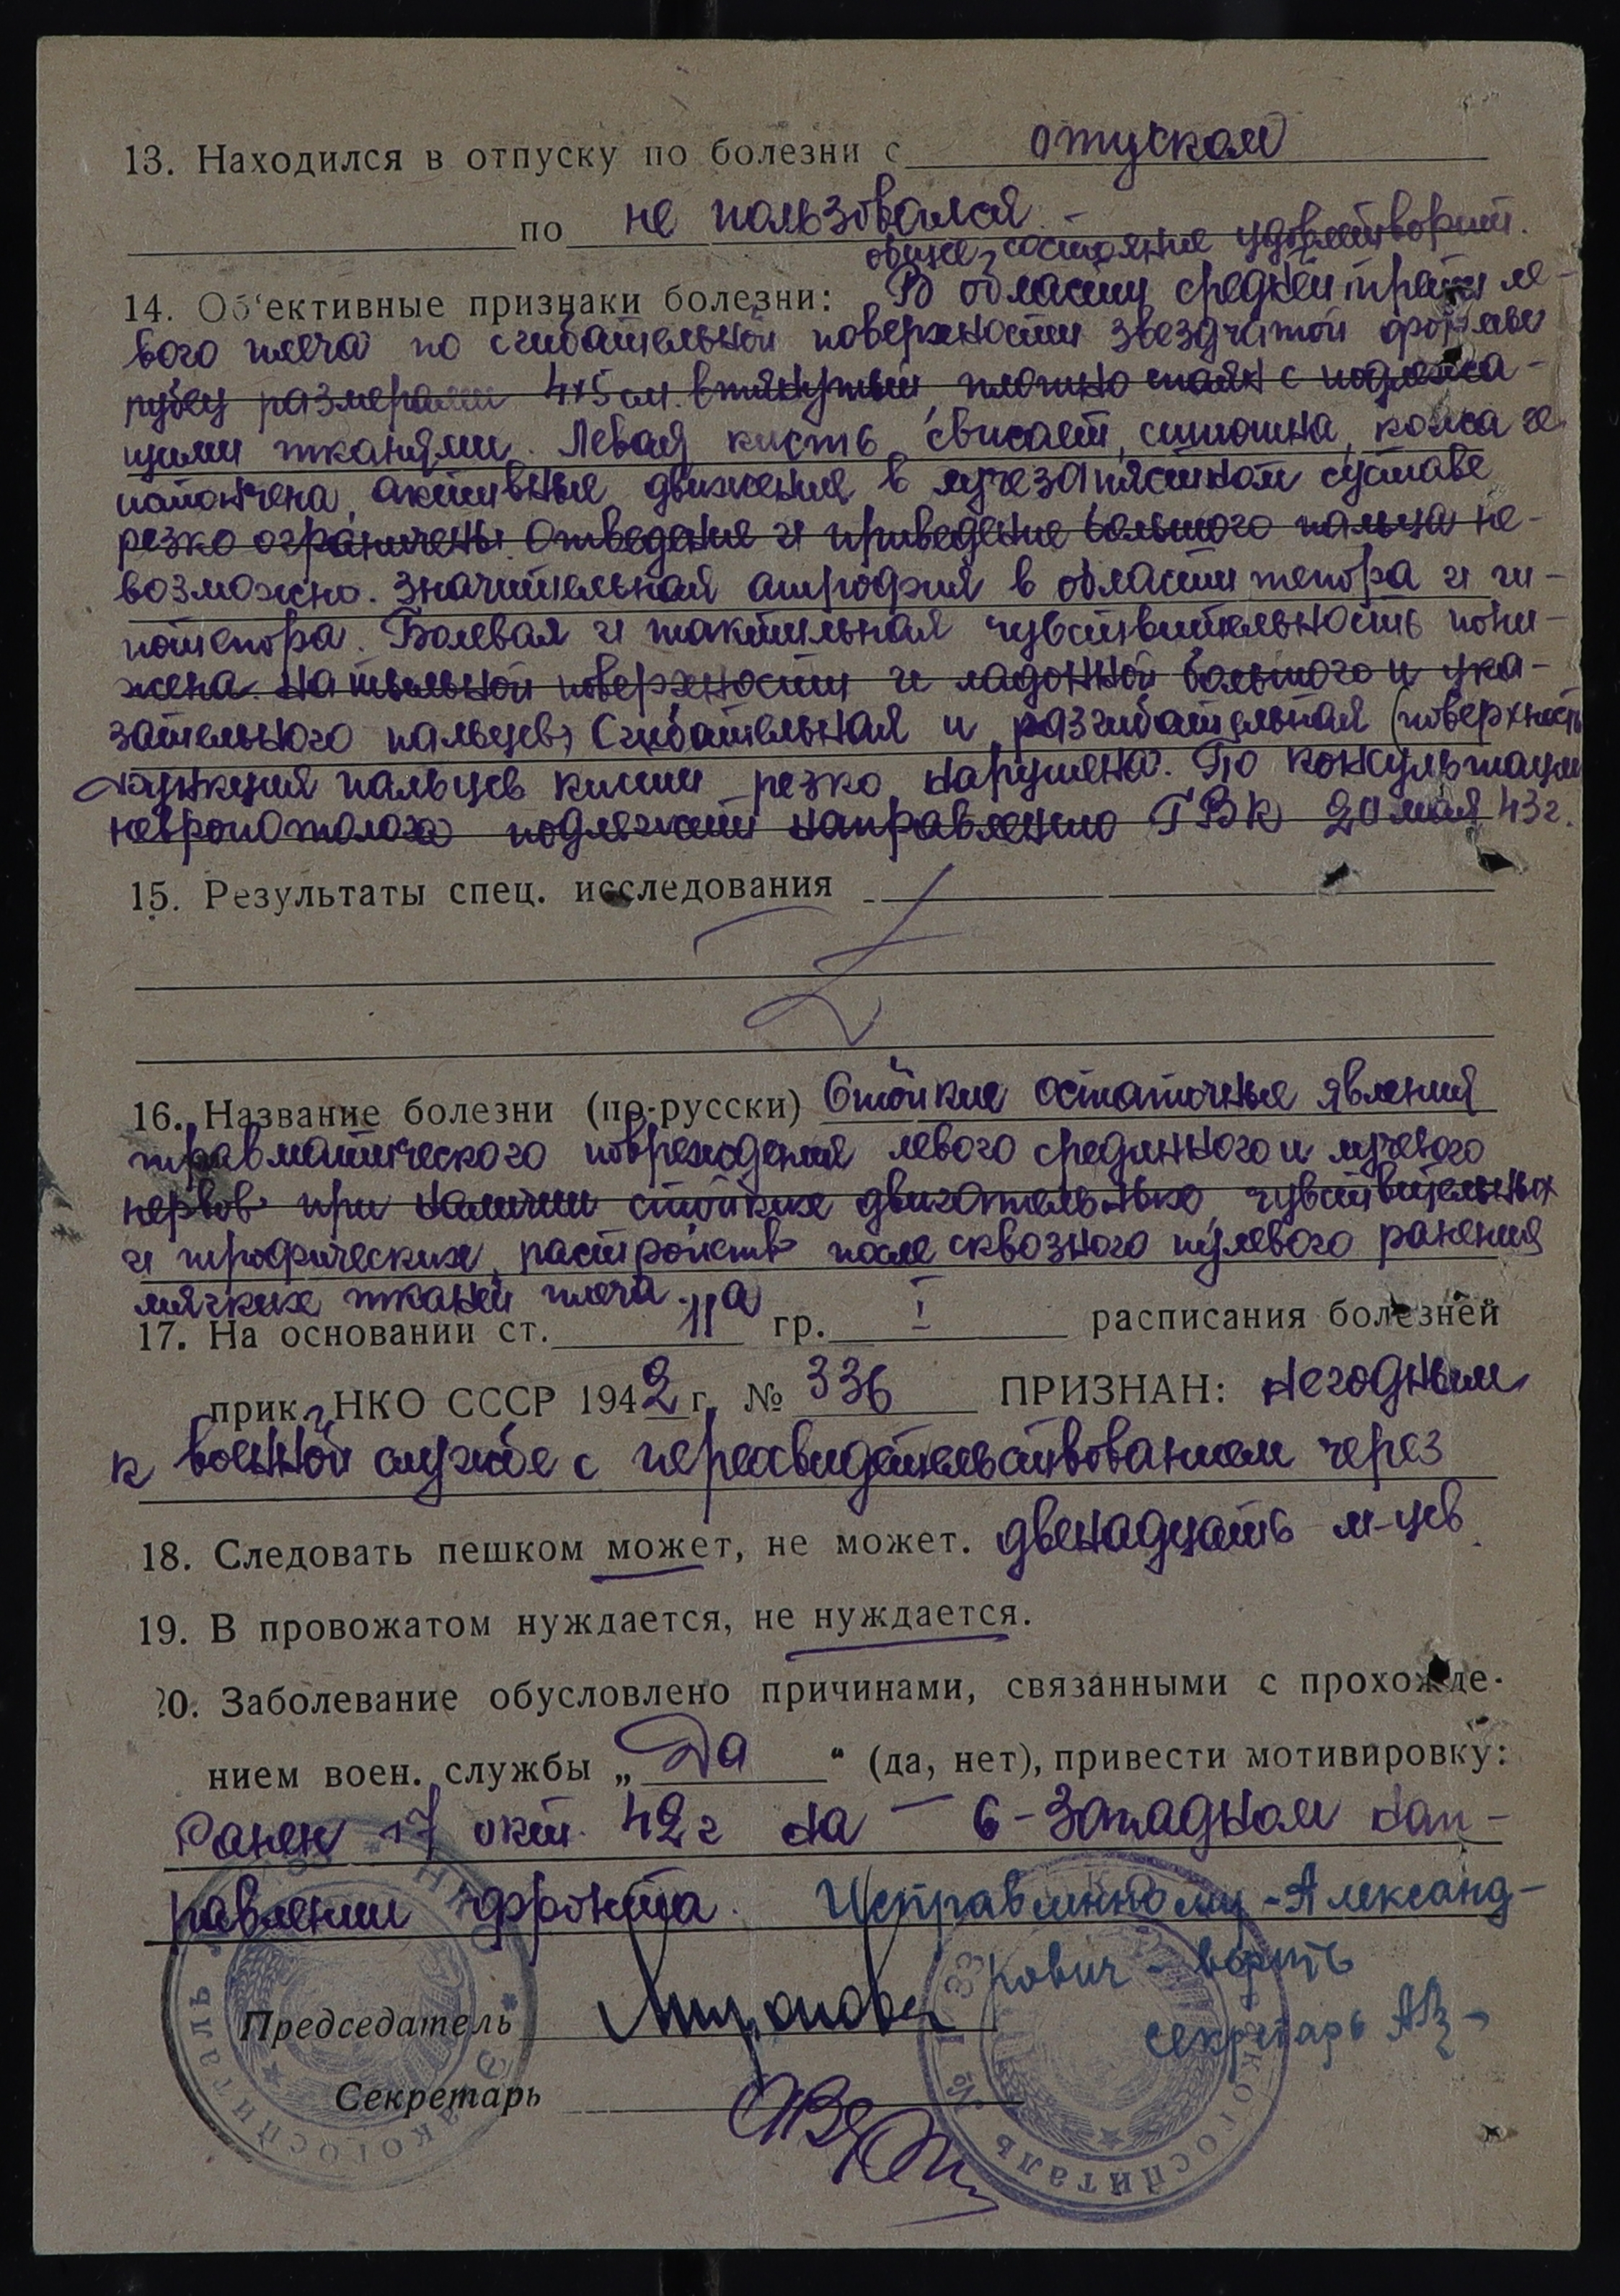 13. Находился в отпуску по болезни с отпуском
по не пользовался. -
общее состояние удовлетворит.
14. Об‘ективные признаки болезни: В области средней трети ле-
вого плеча по сгибательной поверхности звездчатой формы
рубец размерами 4×5 см. втянутый, плотно спаян с подлежа-
щими тканями. Левая кисть свисает, синюшна, кожа ее
истончена, активные движения в лучезапястном суставе
резко ограничены. Отведение и приведение большого пальца не-
возможно. Значительная атрофия в области тенора и ги-
потенора. Болевая и тактильная чувствительность пони-
жена на тыльной поверхности и ладонной большого и ука-
зательного пальцев, Сгибательная и разгибательная (поверхность
функция пальцев кисти резко нарушена. По консультации
невропотолога подлежит направлению ГВК 20 мая 43 г.
15. Результаты спец. исследования
16. Название болезни (по-русски) Стойкие остаточные явления
травматического повреждения левого срединного и лучевого
нервов при наличии стойких двигательных, чувствительных
и трофических растройств после сквозного пулевого ранения
мягких тканей плеча.
17. На основании ст. 11а гр. I расписания болезней
прик. НКО СССР 1942 г. № 336 ПРИЗНАН: негодным
к военной службе с переосвидетельствованием через
18. Следовать пешком может, не может. двенадцать м-цев.
19. В провожатом нуждается, не нуждается.
20. Заболевание обусловлено причинами, связанными с прохожде-
нием воен. службы „Да“ (да, нет), привести мотивировку:
Ранен 17 окт. 42 г на - С-Западном нап-
равлении фронта. Исправленному - Александ-
рович - верить
секретарь
Председатель
Секретарь